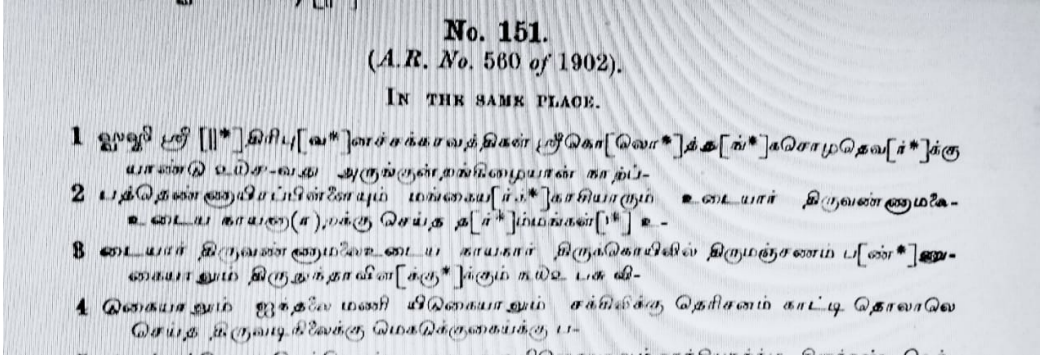 No. 151.
(A.R. No. 560 of 1902).
IN THE SAME PLACE.
1 ஸ்வஸ்தி ஸ்ரீ [||*] திரிபு[வ*]னச்சக்கரவத்திகள் ஸ்ரீகொ[லொ*]த்து[ங்*]கசொழதெவ[ர்*]க்கு
யாண்டு வது அருங்குன்றங்கிழையான் காற்ப்-
2 பத்தெண்ணாயிரப்பிள்ளையும் மங்கைய[ர்க்*]காசியாரும் உடையார் திருவண்ணாமலை-
உடைய நாயனா(ர),க்கு செய்த த[ர்*]ம்மங்கள்[|*] உ-
3 டையார் திருவண்ணாமலைஉடைய நாயகார் திருக்கொயிலில் திருமஞ்சணம் ப[ண்*]ணு-
கையாலும் திருநுந்தாவிள[க்கு*]க்கும் ௩௰௨ பசு வி-
4 டுகையாலும் ஐந்தலை மணி யிடுகையாலும் சக்கிலிக்கு தெரிசனம் காட்டி தொலாலெ
செய்த திருவடிநிலைக்கு மெகடுக்குகைய்க்கு ப-